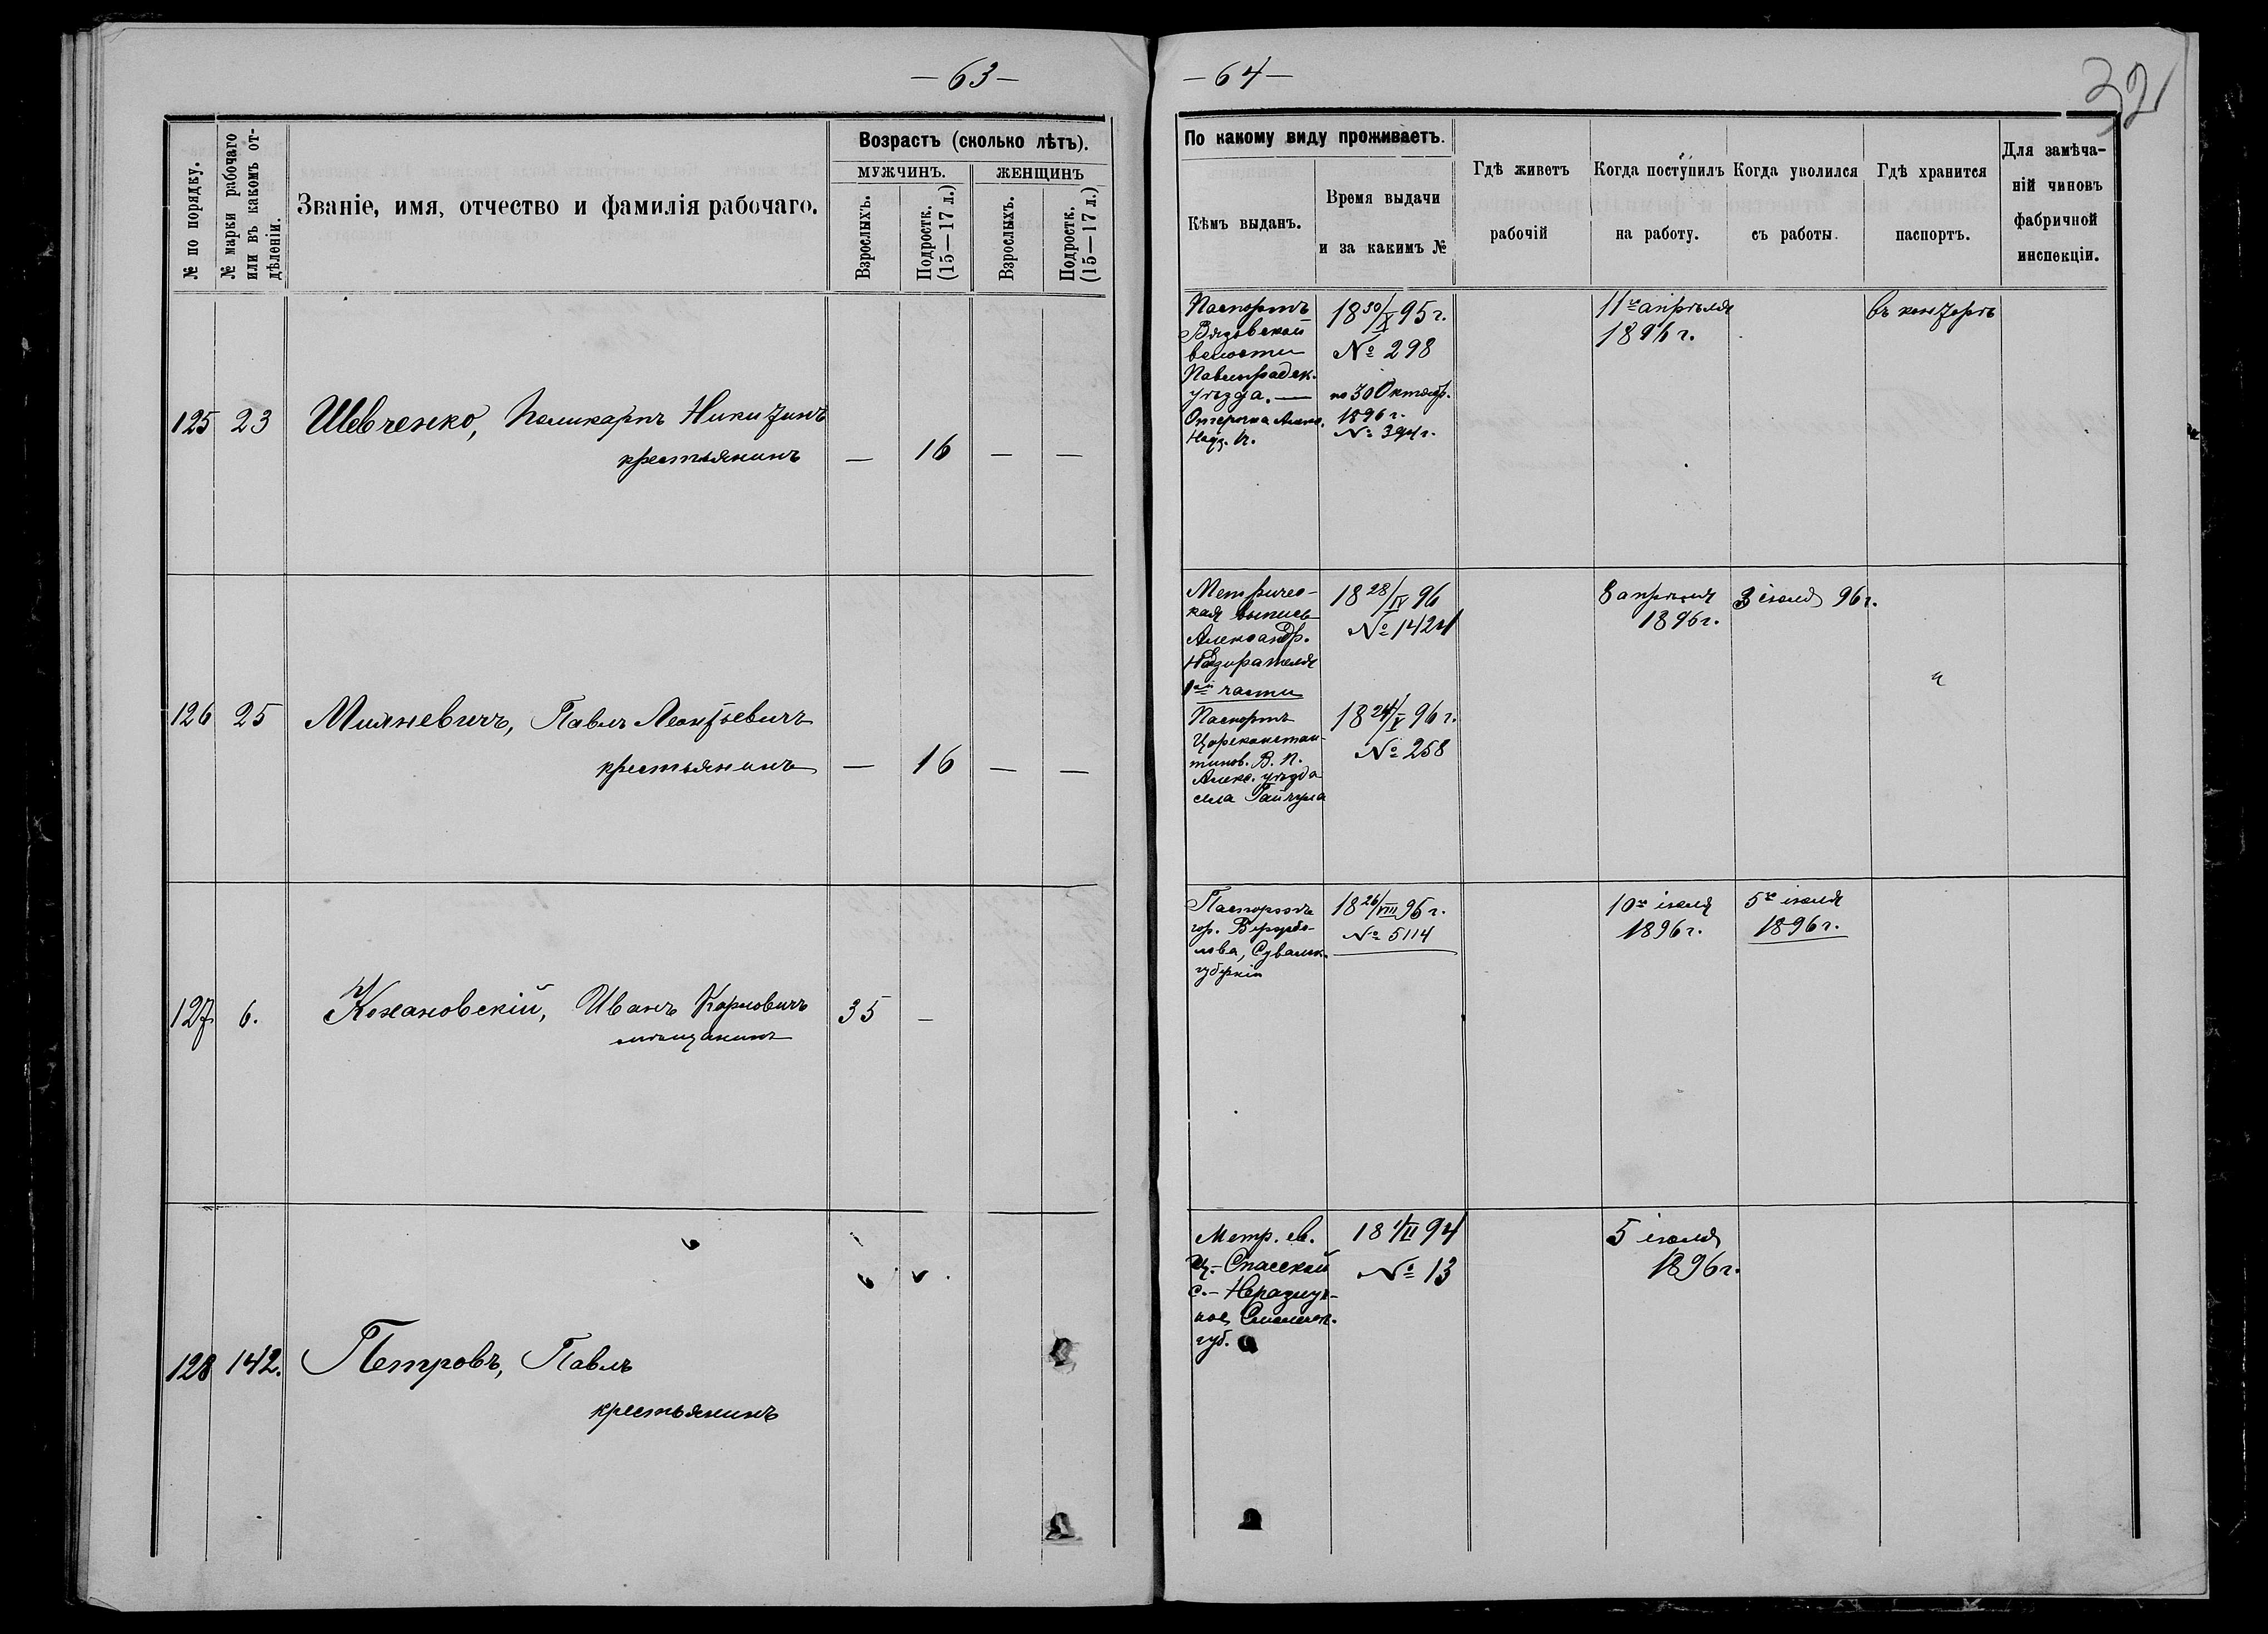 — 63 —
№ по порядку.
№ марки рабочаго
или въ какомъ от-
дѣленіи.
Званіе, имя, отчество и фамилія рабочаго.
Возрастъ (сколько лѣтъ).
МУЖЧИНЪ.
ЖЕНЩИНЪ
Взрослыхъ.
Подростк.
(15—17 л.)
Взрослыхъ.
Подростк.
(15—17 л.)
125 23 Шевченко, Поликарпъ Никитинъ
крестьянинъ — 16 — —
126 25 Миляневичъ, Павлъ Леонтьевичъ
крестьянинъ — 16 — —
127 6. Кохановскій, Иванъ Карловичъ 35 —
мѣщанинъ
128 142. Петровъ, Павлъ
крестьянинъ
— 64 —
32
По какому виду проживаетъ.
Кѣмъ выданъ.
Время выдачи
и за какимъ №
Гдѣ живетъ
рабочій
Когда поступилъ
на работу.
Когда уволился
съ работы.
Гдѣ хранится
паспортъ.
Для замѣча-
ній чиновъ
фабричной
инспекціи.
Паспортъ
Вязовской
волости
Павлоградск.
уѣзда. —
Отсрочка
18 30/X 95 г.
№ 298
по 30 Октябр.
1896 г.
№ 394
11го апрѣля
1896 г.
въ конторѣ
Метричес-
кая выпись
Александр.
Надзирателя
1ой части
Паспортъ
Цареконстан-
тинов. В. П.
Алекс. уѣзда
села Гайчула
18 28/IV 96
№ 1424
18 24/V 96 г.
№ 258
8 апрѣля
1896 г.
3 іюля 96 г.
"
Паспортъ
гор. Вержбо-
лова, Сувалк.
губерніи
18 26/VIII 95 г.
№ 5114
10го іюля
1896 г.
5го іюля
1896 г.
Метр. св.
Ц.- Спасской
губ.
18 1/II 94
№ 13
5 іюля
1896 г.